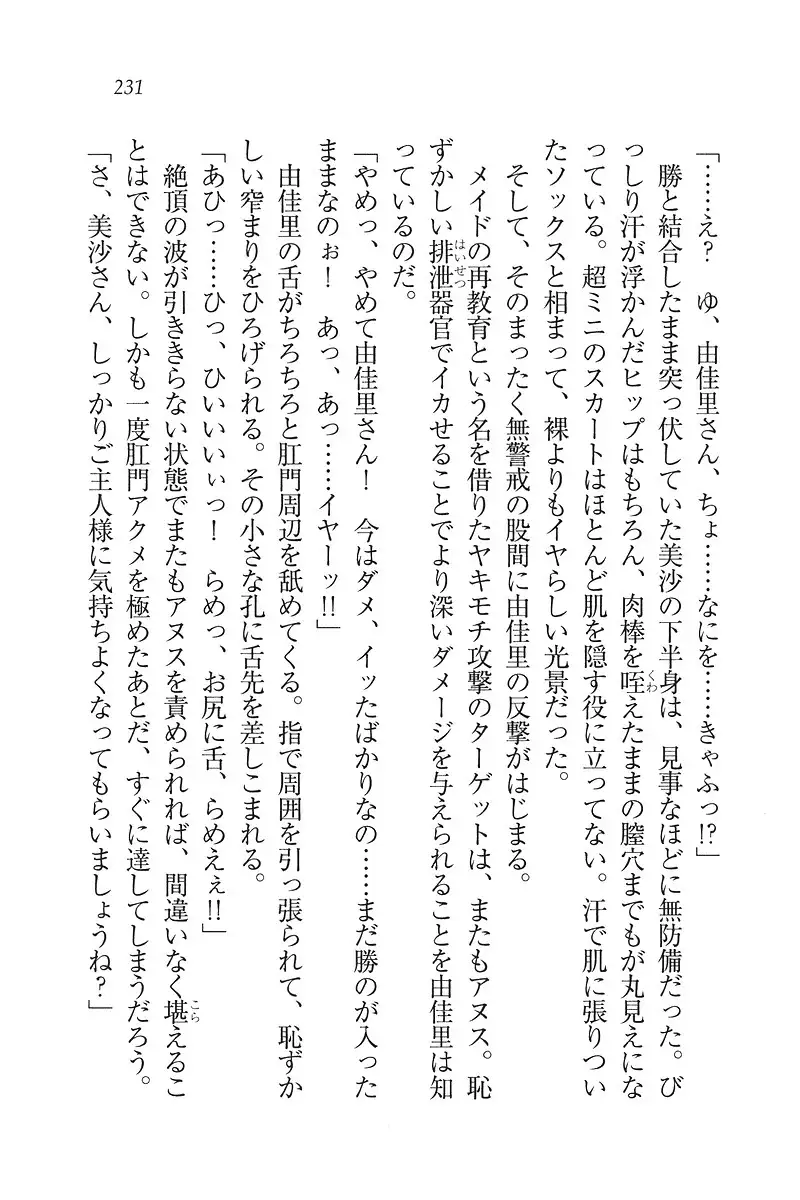 231
「……え？　ゆ、由佳里さん、ちょ……なにを……きゃふっ!?」
　勝と結合したまま突っ伏していた美沙の下半身は、見事なほどに無防備だった。び
っしり汗が浮かんだヒップはもちろん、肉棒を咥えたままの膣穴までもが丸見えにな
っている。超ミニのスカートはほとんど肌を隠す役に立ってない。汗で肌に張りつい
たソックスと相まって、裸よりもイヤらしい光景だった。
　そして、そのまったく無警戒の股間に由佳里の反撃がはじまる。
　メイドの再教育という名を借りたヤキモチ攻撃のターゲットは、またもアヌス。恥
ずかしい排泄器官でイカせることでより深いダメージを与えられることを由佳里は知
っているのだ。
「やめっ、やめて由佳里さん！　今はダメ、イッたばかりなの……まだ勝のが入った
ままなのぉ！　あっ、あっ……イヤーッ!!」
　由佳里の舌がちろちろと肛門周辺を舐めてくる。指で周囲を引っ張られて、恥ずか
しい窄まりをひろげられる。その小さな孔に舌先を差しこまれる。
「あひっ……ひっ、ひいいいぃっ！　らめっ、お尻に舌、らめえぇ!!」
　絶頂の波が引ききらない状態でまたもアヌスを責められれば、間違いなく堪えるこ
とはできない。しかも一度肛門アクメを極めたあとだ、すぐに達してしまうだろう。
「さ、美沙さん、しっかりご主人様に気持ちよくなってもらいましょうね？」